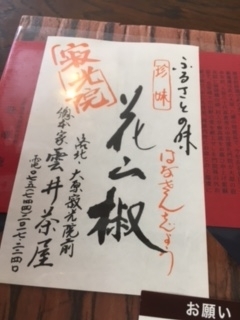 ふるさとの味
珍味
はなさんしょう
花山椒
寂光院
洛北・大原寂光院前
總本家 雲井茶屋
お願い